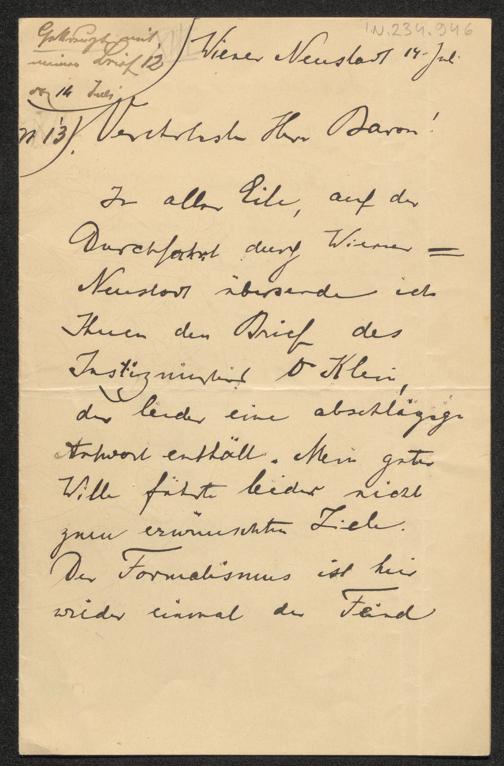 I.N. 234.946
Gekreuzt mit
meinem Brief 12
von 14 Juli
Wiener Neustadt 14. Jul.
N 13) Verehrtester Herr Baron!
In aller Eile, auf der
Durchfahrt durch Wiener =
Neustadt übersende ich
Ihnen den Brief des
Justizministers Dr Klein,
der leider eine abschlägige
Antwort enthält. Mein guter
Wille führte leider nicht
zum erwünschten Ziele.
Der Formalismus ist hier
wieder einmal der Feind